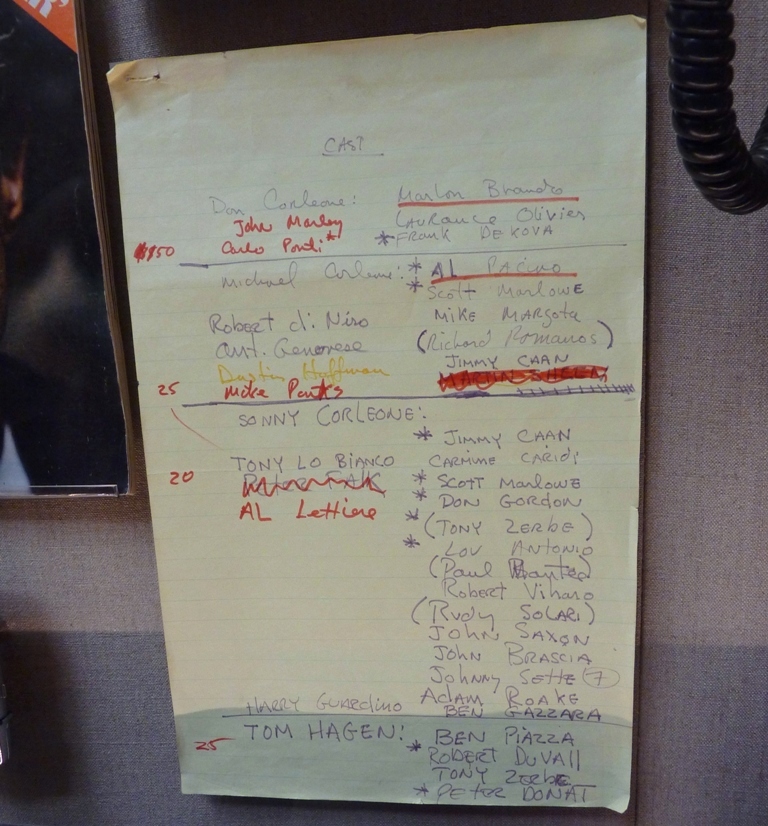 CAST
Don Corleone: Marlon Brando
John Marley Laurance Olivier
$150 Carlo Ponti* *FRANK DE KOVA
Michael Corleone: * AL PACINO
* Scott Marlowe
Robert di Niro MIKE MARGOTA
Ant. Genovese (Richard Romanos)
Dustin Hoffman JIMMY CAAN
25 Mike Parks MARTIN SHEEN
SONNY CORLEONE:
* JIMMY CAAN
TONY LO BIANCO CARMINE CARIDI
20 PETER FALK * SCOTT MARLOWE
AL Lettiere * DON GORDON
* (TONY ZERBE)
* LOU ANTONIO
(Paul
Robert Viharo
(Rudy SOLARI)
JOHN SAXON
JOHN BRASCIA
Johnny SETTE 7
Adam ROAKE
HARRY GUARDINO BEN GAZZARA
25 TOM HAGEN: BEN PIAZZA
* ROBERT DUVALL
TONY ZERBE
* PETER DONAT